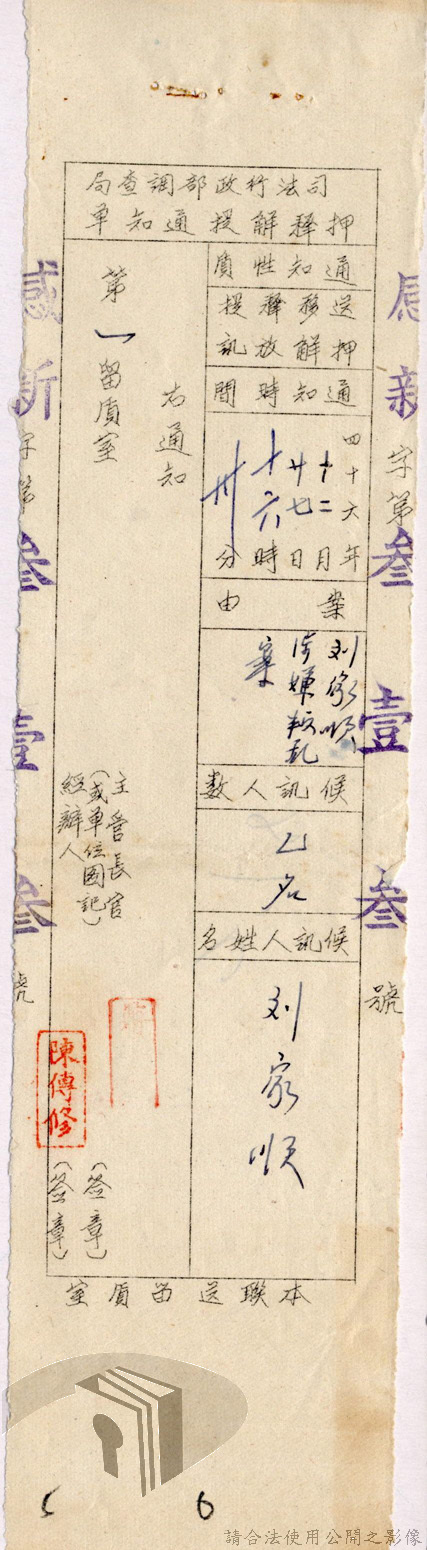 司法行政部調查局
押釋解提通知單
通知性質
送押 移解 釋放 提訊
通知時間
四十六年十二月廿七日十六時卅分
案由
刘家顺涉嫌叛乱案
候訊人數
乙名
候訊人姓名
刘家顺
右通知
第一留質室
主管長官
(或單位圖記)
(簽章)
經辦人
陳傳修
(簽章)
本聯送留質室
字第
號
感新
叁壹叁
號
5 6
請合法使用公開之影像